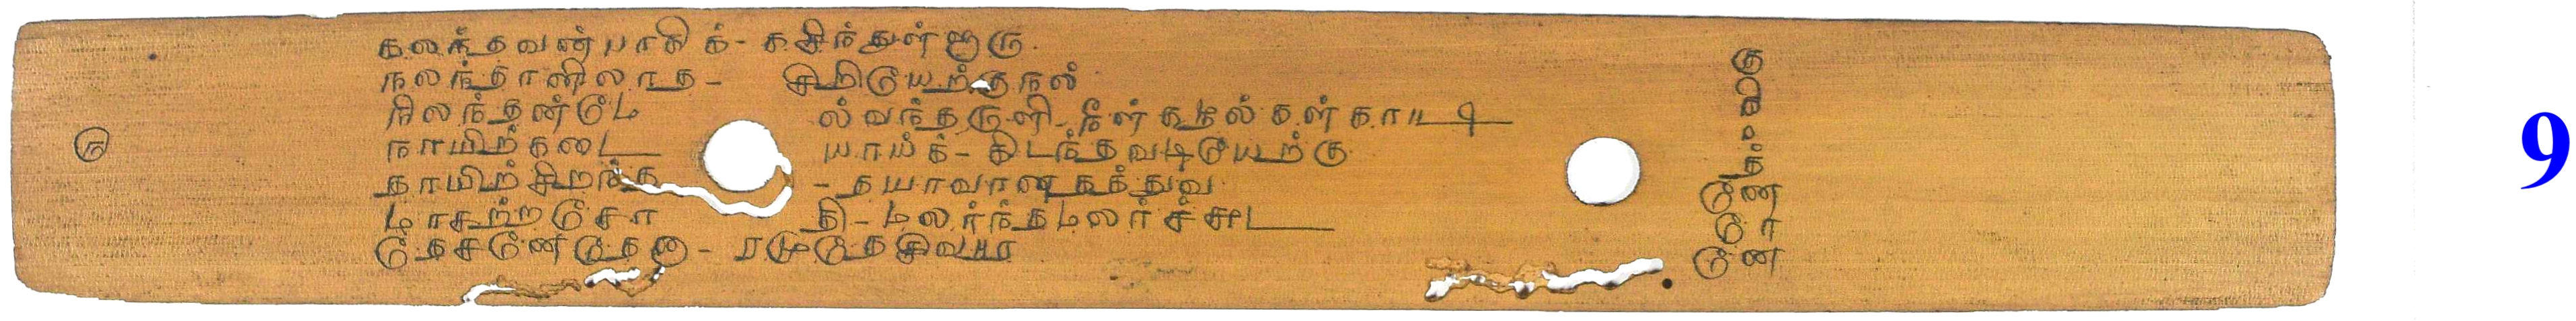 கலந்தவன்பாகிக் - கசிந்துள்ளுரு கு
நலந்தானிலாத - சிறியேற்குநல் கி
நிலந்தன்மே ல்வந்தருளி - நீள்கழல்கள்காட்டி
௫ நாயிற்கடை யாய்க் - கிடந்தவடியேற்கு த்
தாயிற்சிறந்த - தயாவானதத்துவ னே
மாசற்றசோ தி - மலர்ந்தமலர்ச்சுட ரே
தேசனேதேனா - ரமுதேசிவபுரா னே
9